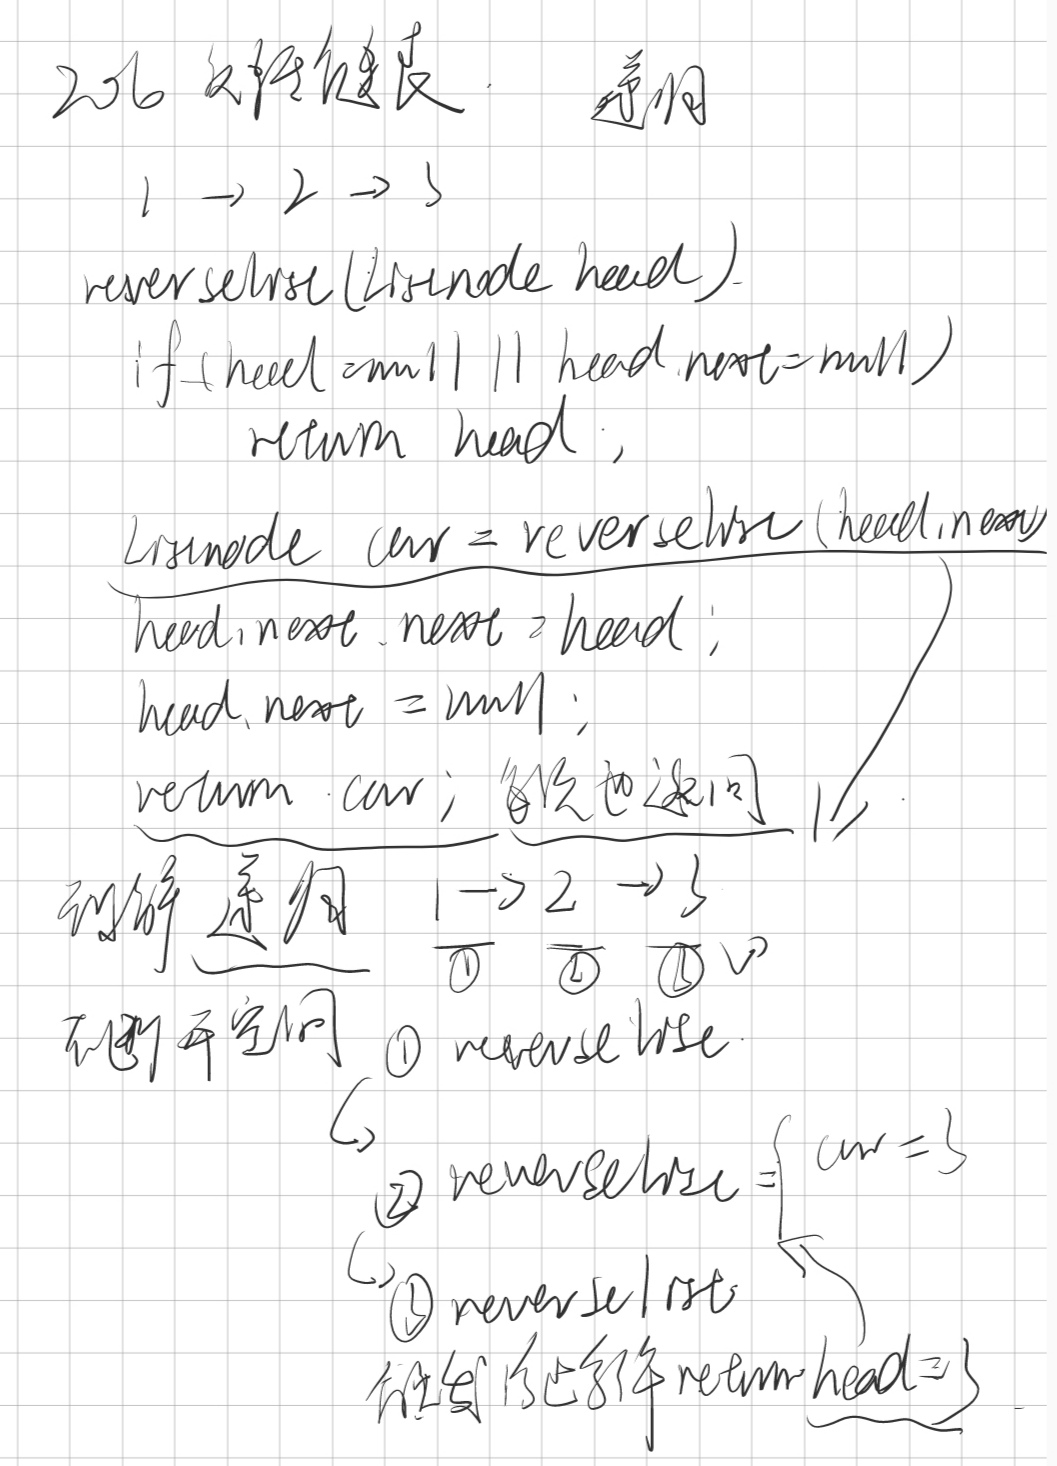 206 反转链表. 递归
1 → 2 → 3
reverselist(Listnode head)
if(head=null || head.next=null)
return head;
Listnode cur = reverselist(head.next)
head.next.next = head;
head.next = null;
return cur; 空间
理解 递归 1 → 2 → 3
① ② ③
开空间 ① reverselist
② reverselist = { cur = 3
③ reverselist
触发 终止条件 return head=3